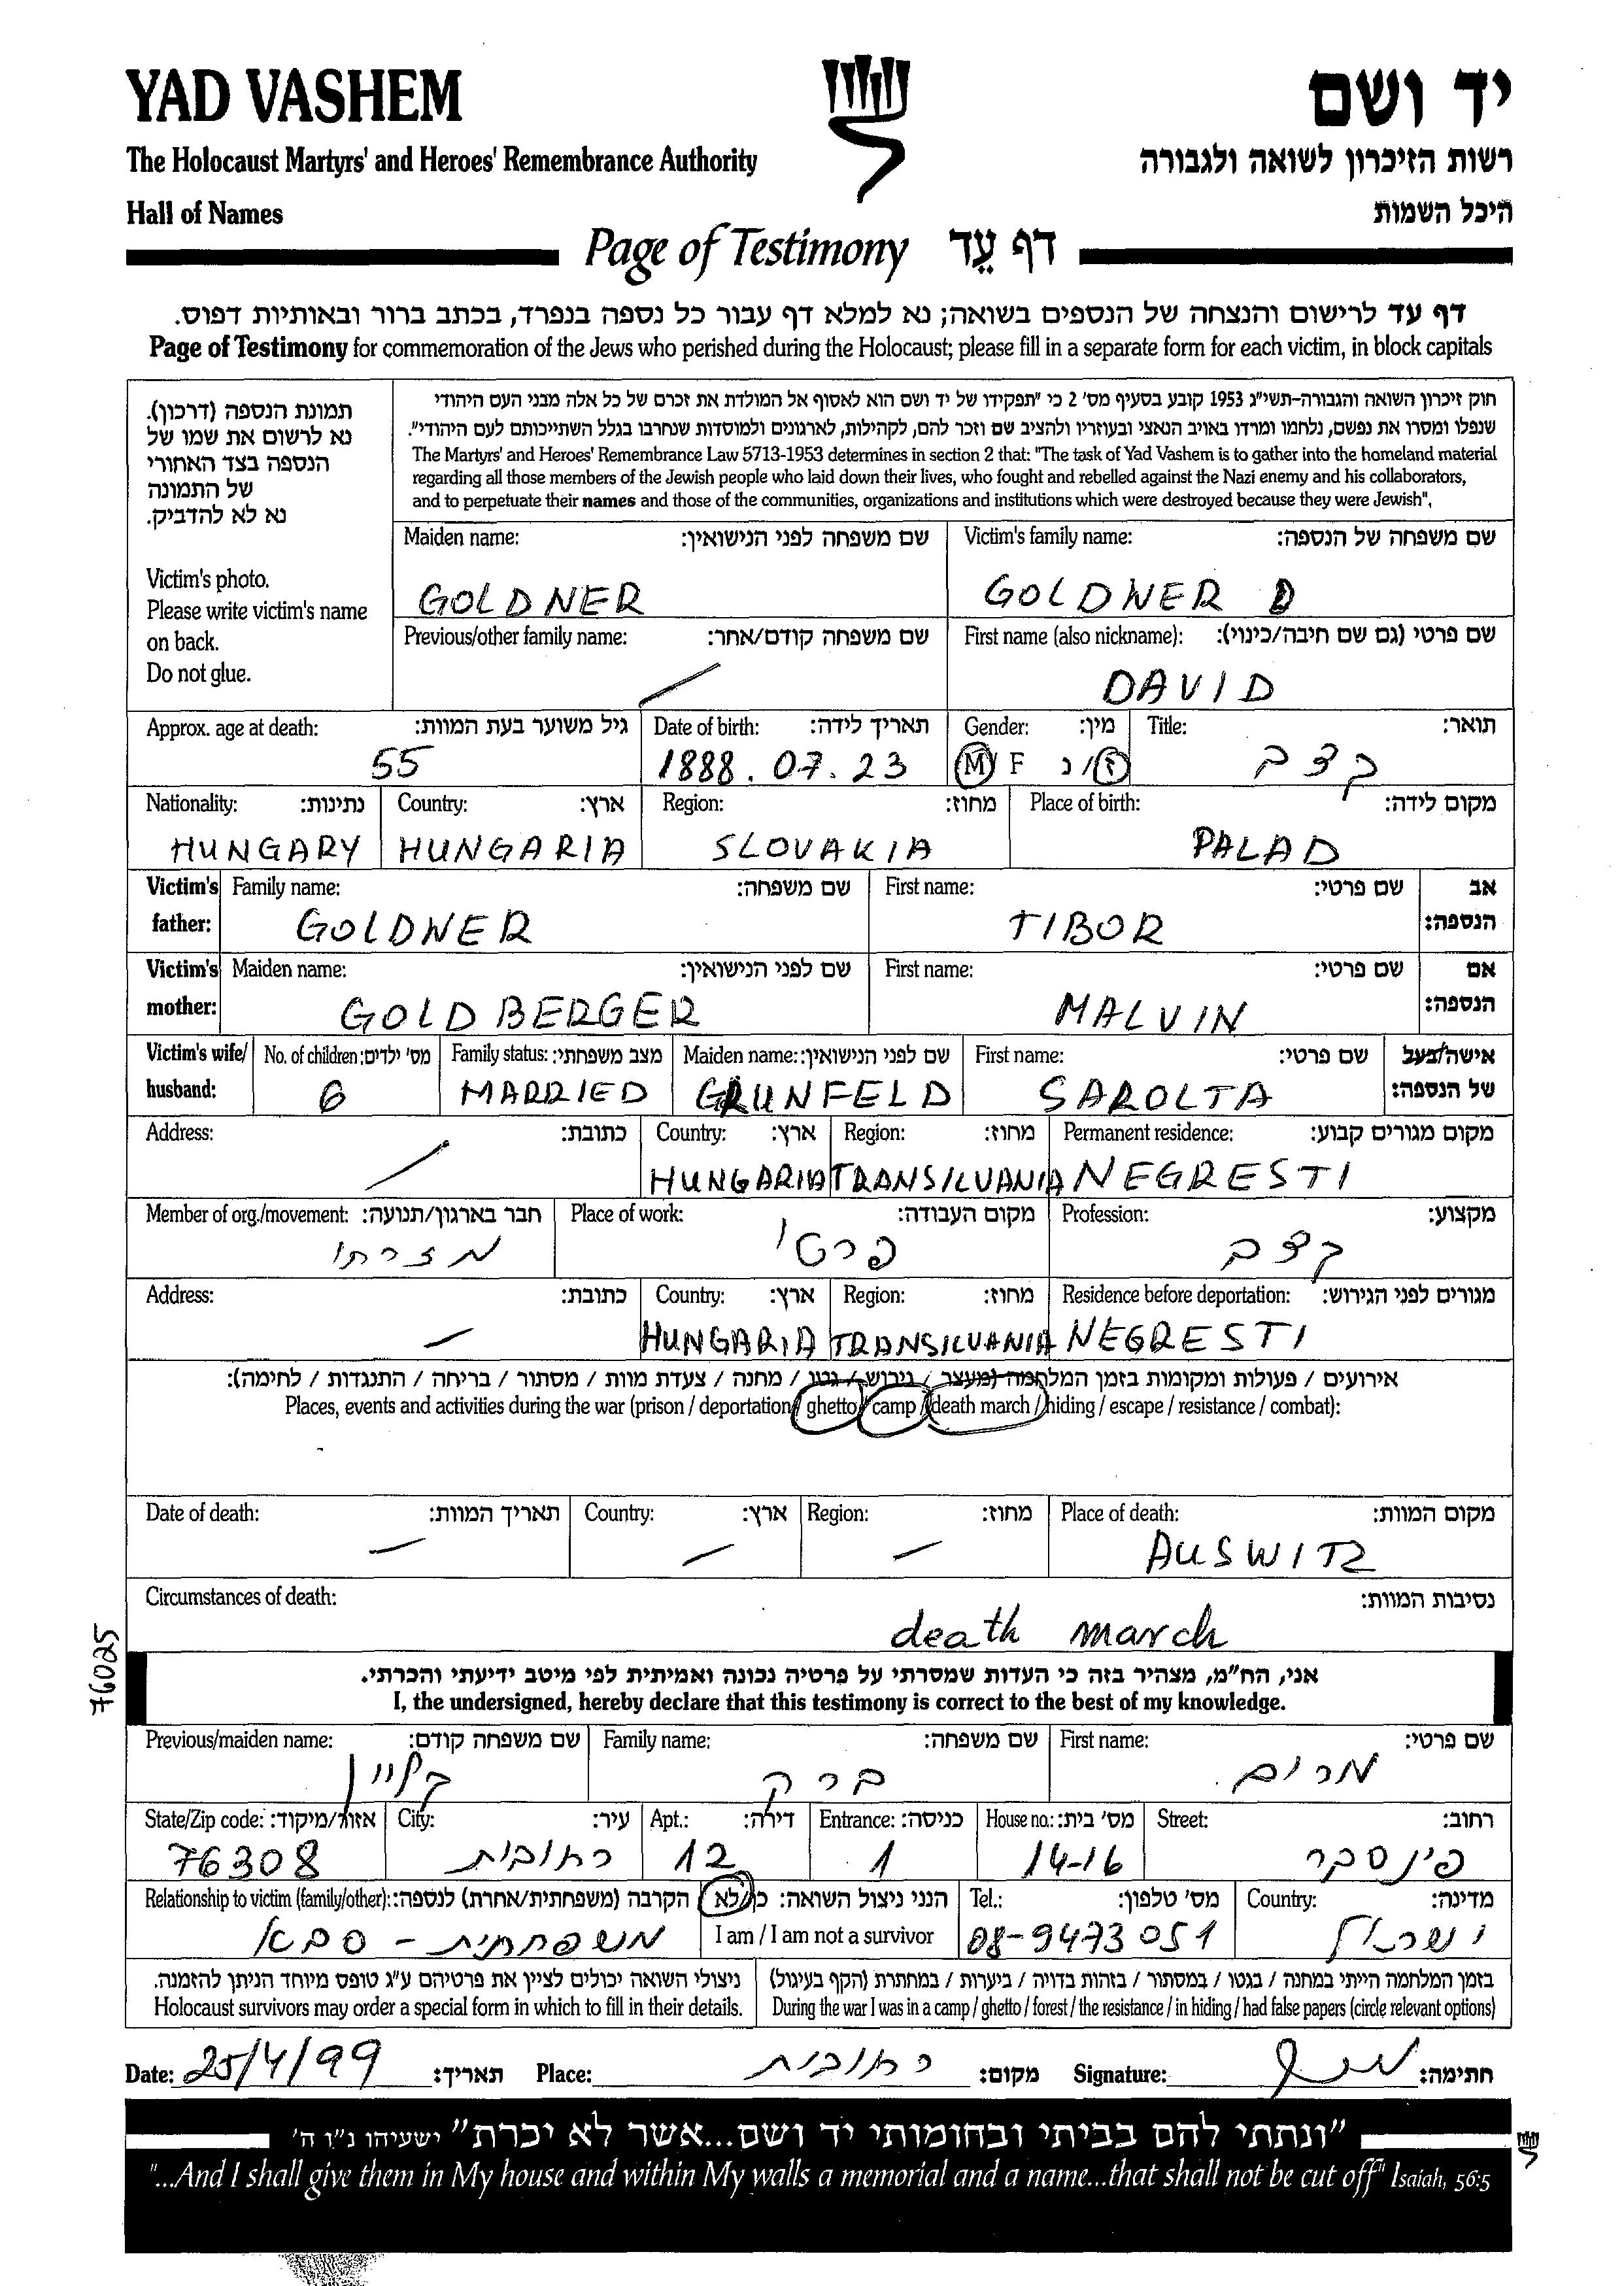 YAD VASHEM
יד ושם
The Holocaust Martyrs' and Heroes' Remembrance Authority
רשות הזיכרון לשואה ולגבורה
Hall of Names
היכל השמות
Page of Testimony דף עֵד
דף עד לרישום והנצחה של הנספים בשואה; נא למלא דף עבור כל נספה בנפרד, בכתב ברור ובאותיות דפוס.
Page of Testimony for commemoration of the Jews who perished during the Holocaust; please fill in a separate form for each victim, in block capitals
תמונת הנספה (דרכון).
נא לרשום את שמו של
הנספה בצד האחורי
של התמונה
נא לא להדביק.
Victim's photo.
Please write victim's name
on back.
Do not glue.
חוק זיכרון השואה והגבורה-תשי"ג 1953 קובע בסעיף מס' 2 כי "תפקידו של יד ושם הוא לאסוף אל המולדת את זכרם של כל אלה מבני העם היהודי
שנפלו ומסרו את נפשם, נלחמו ומרדו באויב הנאצי ובעוזריו ולהציב שם וזכר להם, לקהילות, לארגונים ולמוסדות שנחרבו בגלל השתייכותם לעם היהודי".
The Martyrs' and Heroes' Remembrance Law 5713-1953 determines in section 2 that: "The task of Yad Vashem is to gather into the homeland material
regarding all those members of the Jewish people who laid down their lives, who fought and rebelled against the Nazi enemy and his collaborators,
and to perpetuate their names and those of the communities, organizations and institutions which were destroyed because they were Jewish",
Maiden name: שם משפחה לפני הנישואין: Victim's family name: שם משפחה של הנספה:
GOLDNER GOLDNER D
Previous/other family name: שם משפחה קודם/אחר: First name (also nickname): שם פרטי (גם שם חיבה/כינוי):
/ DAVID
Approx. age at death: גיל משוער בעת המוות: Date of birth: תאריך לידה: Gender: מין: Title: תואר:
55 1888.07.23 M F ז/נ קצב
Nationality: נתינות: Country: ארץ: Region: מחוז: Place of birth: מקום לידה:
HUNGARY HUNGARIA SLOVAKIA PALAD
Victim's father: Family name: שם משפחה: First name: שם פרטי: אב הנספה:
GOLDNER TIBOR
Victim's mother: Maiden name: שם לפני הנישואין: First name: שם פרטי: אם הנספה:
GOLDBERGER MALVIN
Victim's wife/ husband: No. of children: מס' ילדים: Family status: מצב משפחתי: Maiden name: שם לפני הנישואין: First name: שם פרטי: אישה/בעל של הנספה:
6 MARRIED GRUNFELD SAROLTA
Address: כתובת: Country: ארץ: Region: מחוז: Permanent residence: מקום מגורים קבוע:
/ HUNGARIA TRANSILVANIA NEGRESTI
Member of org./movement: חבר בארגון/תנועה: Place of work: מקום העבודה: Profession: מקצוע:
מזרחי פרטי קצב
Address: כתובת: Country: ארץ: Region: מחוז: Residence before deportation: מגורים לפני הגירוש:
— HUNGARIA TRANSILVANIA NEGRESTI
אירועים / פעולות ומקומות בזמן המלחמה (מעצר / גירוש / גטו / מחנה / צעדת מוות / מסתור / בריחה / התנגדות / לחימה):
Places, events and activities during the war (prison / deportation / ghetto / camp / death march / hiding / escape / resistance / combat):
Date of death: תאריך המוות: Country: ארץ: Region: מחוז: Place of death: מקום המוות:
— — — AUSWITZ
Circumstances of death: נסיבות המוות:
death march
76025
אני, הח"מ, מצהיר בזה כי העדות שמסרתי על פרטיה נכונה ואמיתית לפי מיטב ידיעתי והכרתי.
I, the undersigned, hereby declare that this testimony is correct to the best of my knowledge.
Previous/maiden name: שם משפחה קודם: Family name: שם משפחה: First name: שם פרטי:
קליין ברק מרים
State/Zip code: אזור/מיקוד: City: עיר: Apt.: דירה: Entrance: כניסה: House no.: מס' בית: Street: רחוב:
76308 רחובות 12 1 14-16 פינסקר
Relationship to victim (family/other): הקרבה (משפחתית/אחרת) לנספה: הנני ניצול השואה: כן/לא Tel.: מס' טלפון: Country: מדינה:
משפחתית - סבא I am / I am not a survivor 08-9473051 ישראל
ניצולי השואה יכולים לציין את פרטיהם ע"ג טופס מיוחד הניתן להזמנה.
Holocaust survivors may order a special form in which to fill in their details.
בזמן המלחמה הייתי במחנה / בגטו / במסתור / בזהות בדויה / ביערות / במחתרת (הקף בעיגול)
During the war I was in a camp / ghetto / forest / the resistance / in hiding / had false papers (circle relevant options)
Date: 25/4/99 תאריך: Place: רחובות מקום: Signature: חתימה:
"ונתתי להם בביתי ובחומותי יד ושם...אשר לא יכרת" ישעיהו נ"ו ה'
"...And I shall give them in My house and within My walls a memorial and a name...that shall not be cut off" Isaiah, 56:5